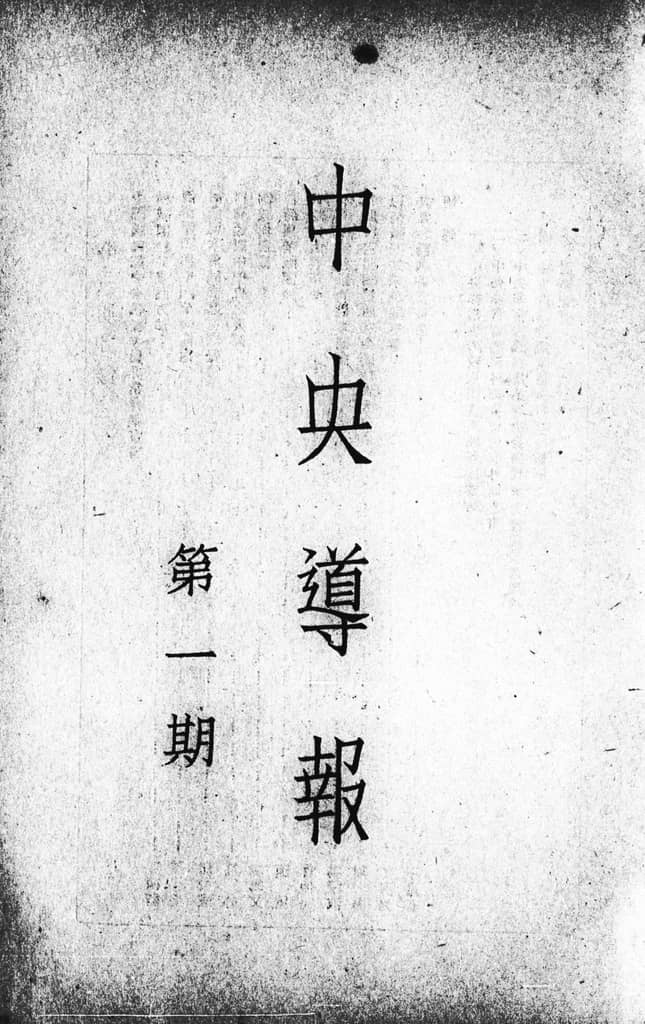 中央導報
第一期